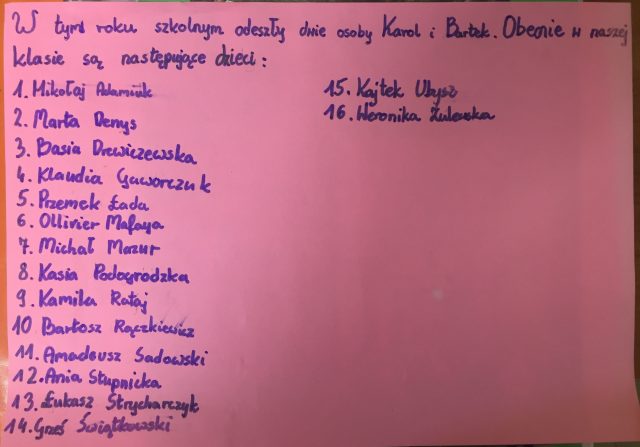 W tym roku szkolnym odeszły dwie osoby Karol i Bartek. Obecnie w naszej
klasie są następujące dzieci:
1. Mikołaj Adamiuk
2. Marta Denys
3. Basia Drewiczewska
4. Klaudia Gaworczuk
5. Przemek Łada
6. Ollivier Mafaya
7. Michał Mazur
8. Kasia Podogrodzka
9. Kamila Rataj
10 Bartosz Rączkiewicz
11. Amadeusz Sadowski
12. Ania Stupnicka
13. Łukasz Strycharczyk
14. Grześ Świątkowski
15. Kajtek
16. Weronika Żulewska